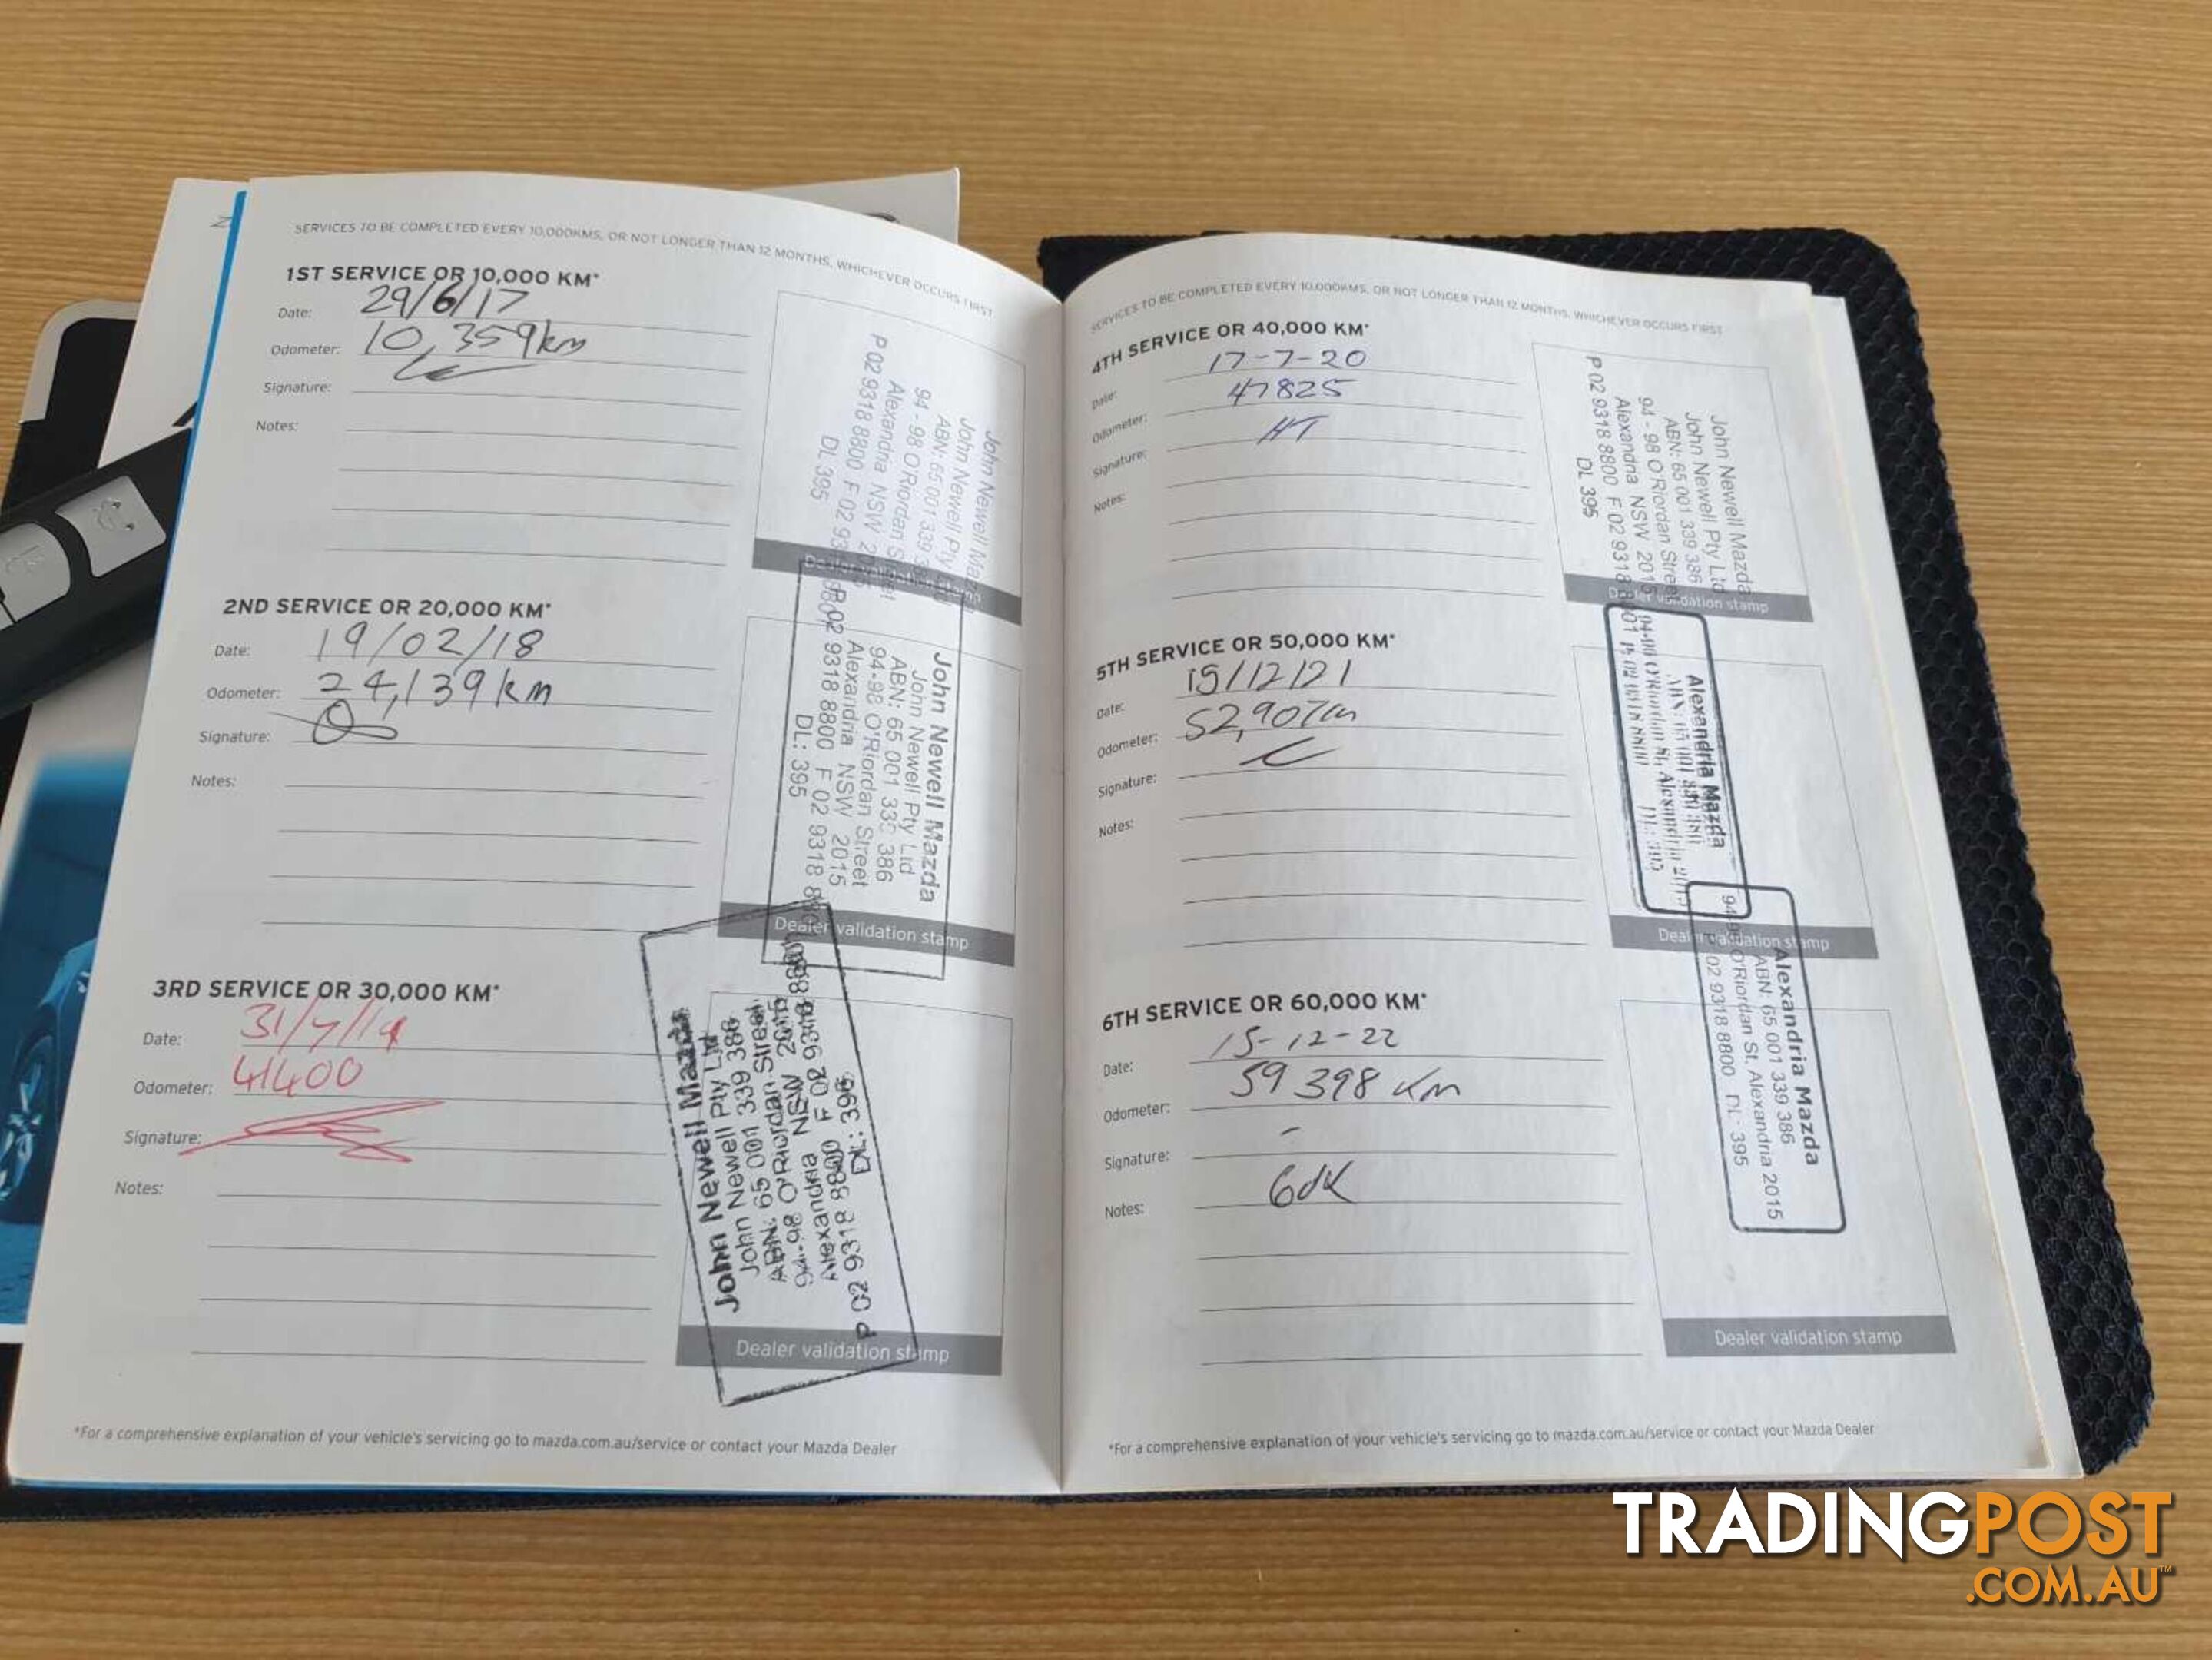 SERVICES TO BE COMPLETED EVERY 10,000KMS, OR NOT LONGER THAN 12 MONTHS, WHICHEVER OCCURS FIRST
1ST SERVICE OR 10,000 KM*
Date: 29/6/17
Odometer: 10,359km
Signature:
Notes:
John Newell Mazda
John Newell Pty
ABN: 65 001 339
94 - 98 O'Riordan Street
Alexandria NSW
P 02 9318 8800 F 02 93
DL 395
Dealer validation stamp
2ND SERVICE OR 20,000 KM*
Date: 19/02/18
Odometer: 24,139km
Signature:
Notes:
John Newell Mazda
John Newell Pty Ltd
ABN: 65 001 339 386
94-98 O'Riordan Street
Alexandria NSW 2015
P 02 9318 8800 F 02 9318 8801
DL: 395
Dealer validation stamp
3RD SERVICE OR 30,000 KM*
Date: 31/7/19
Odometer: 41400
Signature:
Notes:
John Newell Mazda
John Newell Pty Ltd
ABN: 65 001 339 386
94-98 O'Riordan Street
Alexandria NSW 2015
P 02 9318 8800 F 02 9318 8801
DL: 395
Dealer validation stamp
*For a comprehensive explanation of your vehicle's servicing go to mazda.com.au/service or contact your Mazda Dealer
SERVICES TO BE COMPLETED EVERY 10,000KMS, OR NOT LONGER THAN 12 MONTHS, WHICHEVER OCCURS FIRST
4TH SERVICE OR 40,000 KM*
Date: 17-7-20
Odometer: 47825
Signature: HT
Notes:
John Newell Mazda
John Newell Pty Ltd
ABN: 65 001 339 386
94 - 98 O'Riordan Street
Alexandria NSW 2015
P 02 9318 8800 F 02 9318 8801
DL 395
Dealer validation stamp
5TH SERVICE OR 50,000 KM*
Date: 15/12/21
Odometer: 52,907km
Signature:
Notes:
Alexandria Mazda
O'Riordan St, Alexandria
Dealer validation stamp
6TH SERVICE OR 60,000 KM*
Date: 15-12-22
Odometer: 59 398 km
Signature:
Notes:
Alexandria Mazda
ABN: 65 001 339 386
O'Riordan St. Alexandria 2015
02 9318 8800 DL: 395
Dealer validation stamp
*For a comprehensive explanation of your vehicle's servicing go to mazda.com.au/service or contact your Mazda Dealer
TRADINGPOST
.COM.AU™